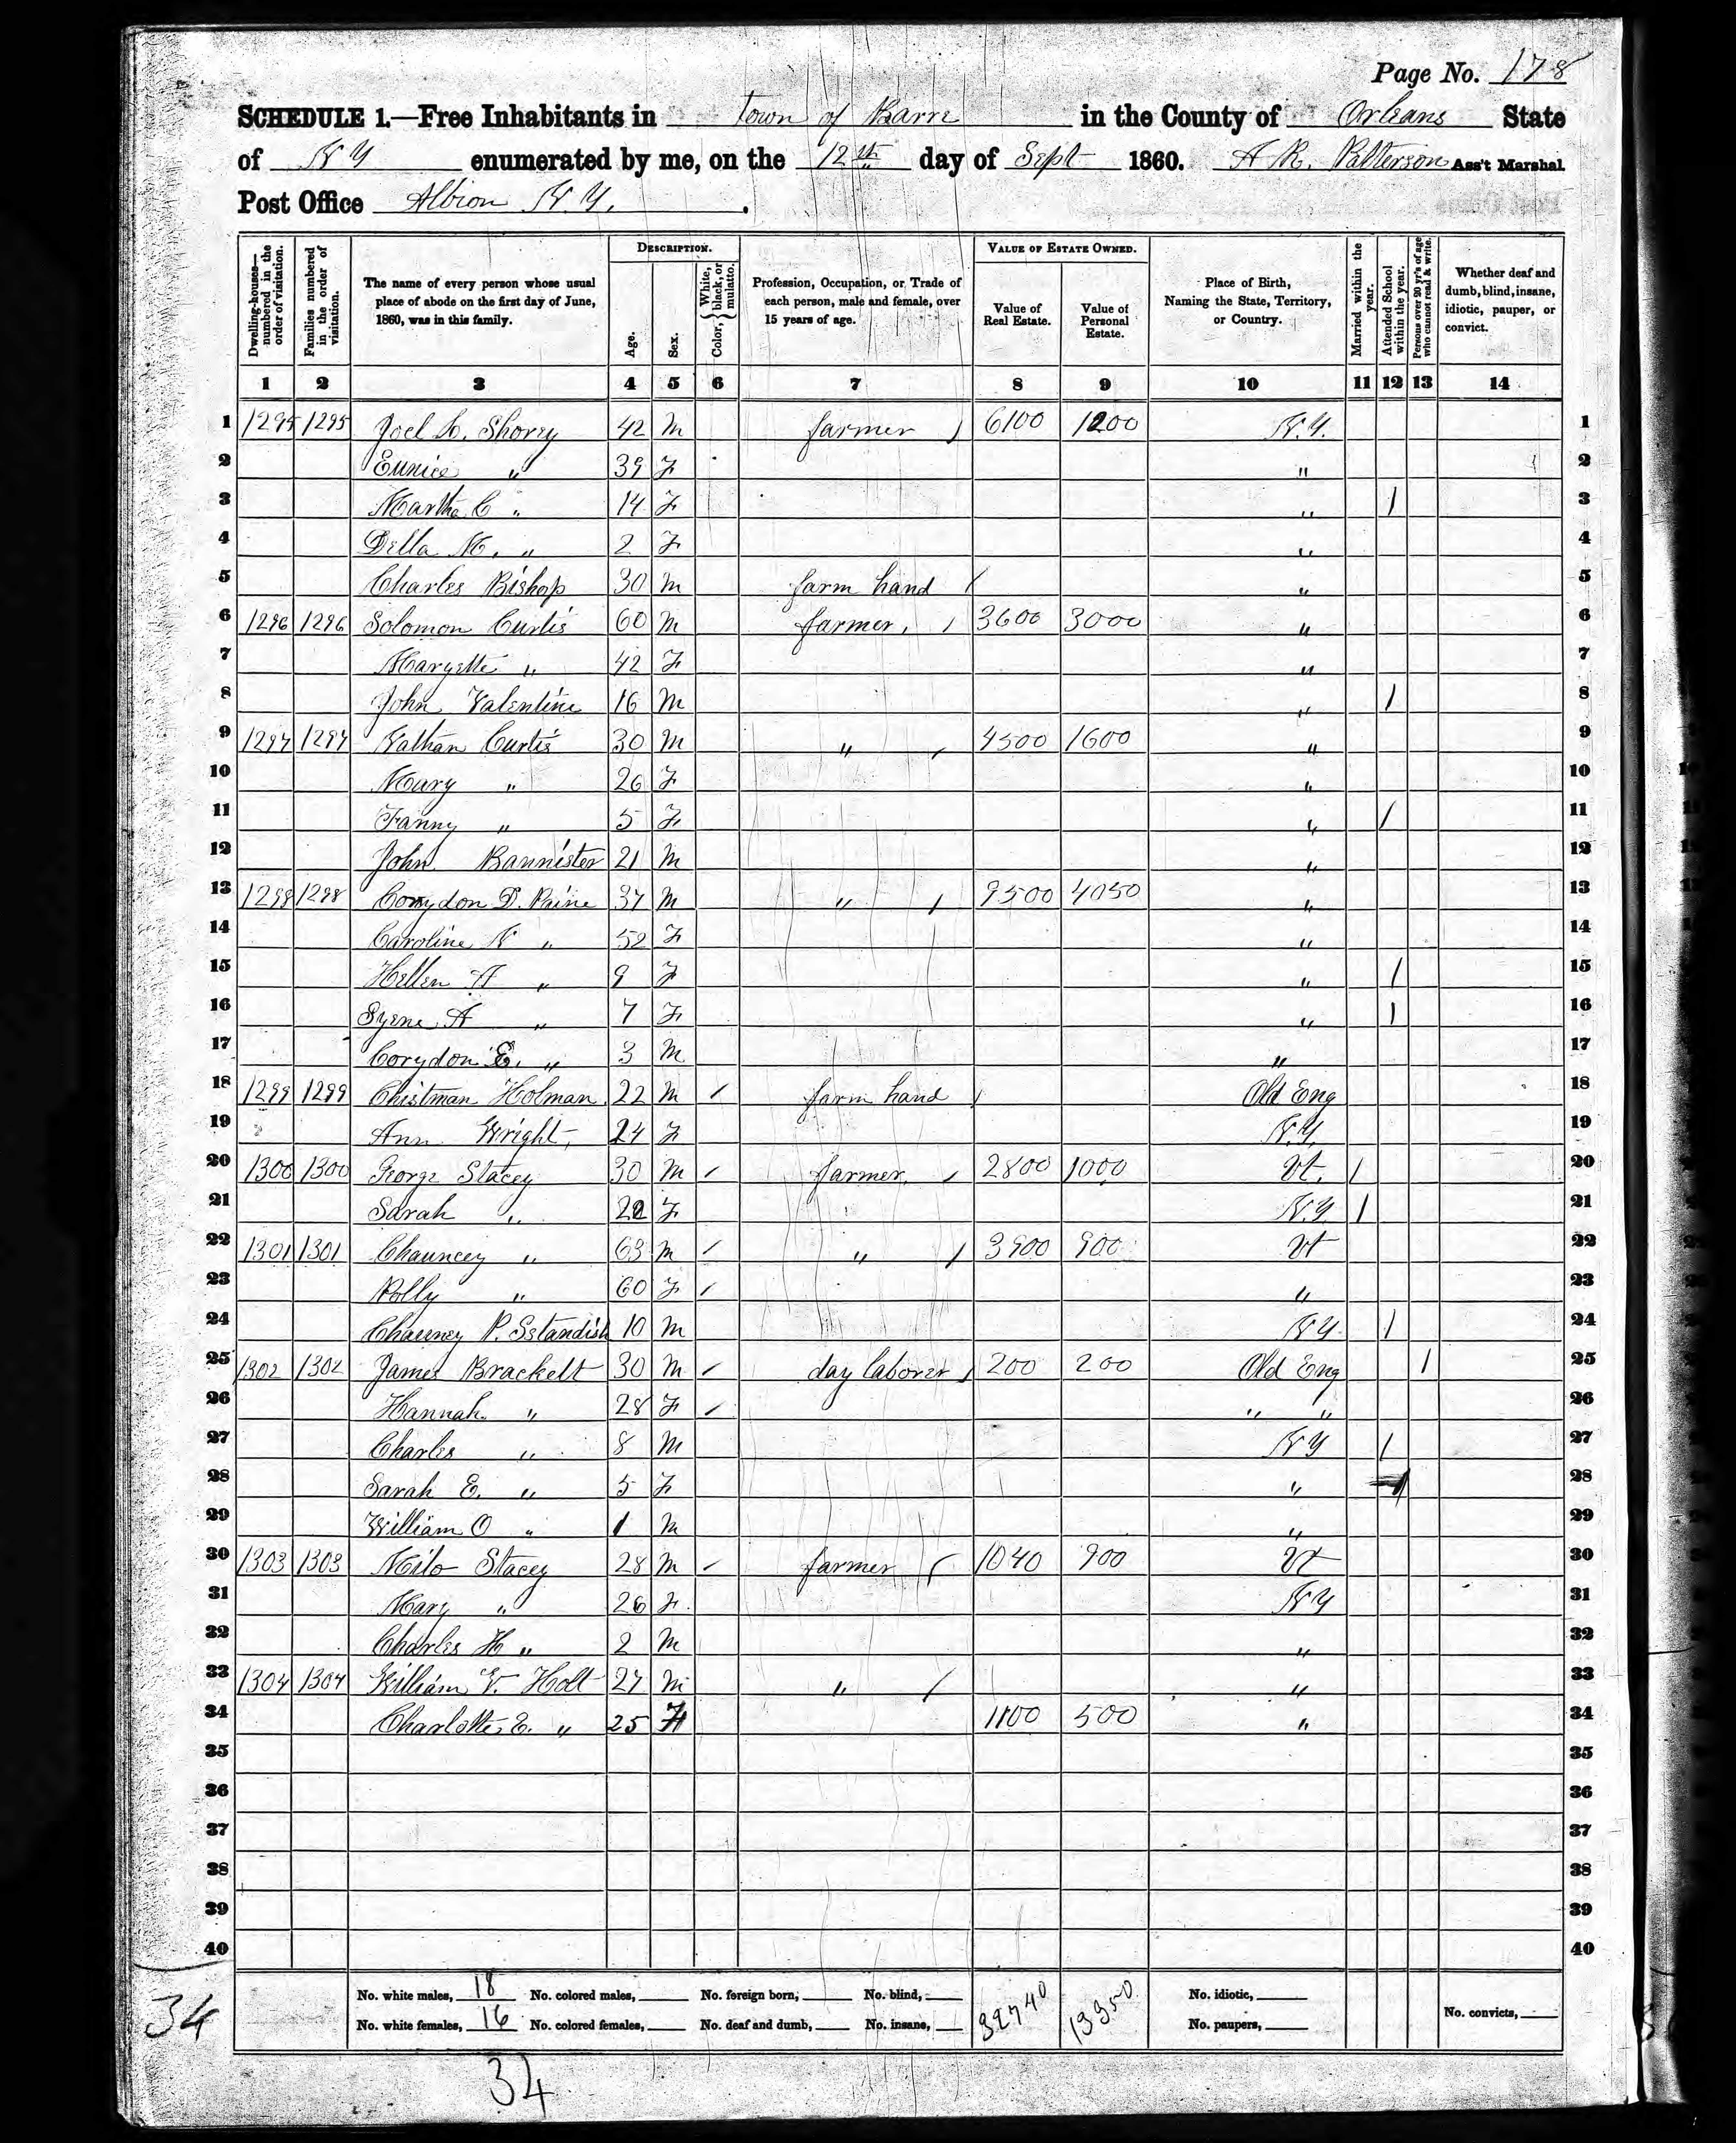 Page No. 178
SCHEDULE 1.—Free Inhabitants in Town of Barre in the County of Orleans State
of N Y enumerated by me, on the 12th day of Sept 1860. A R. Patterson Ass't Marshal
Post Office Albion N. Y.
Dwelling-houses—numbered in the order of visitation. Families numbered in the order of visitation. The name of every person whose usual place of abode on the first day of June, 1860, was in this family. DESCRIPTION. Age. Sex. Color, {White, black, or mulatto. Profession, Occupation, or Trade of each person, male and female, over 15 years of age. VALUE OF ESTATE OWNED. Value of Real Estate. Value of Personal Estate. Place of Birth, Naming the State, Territory, or Country. Married within the year. Attended School within the year. Persons over 20 yr's of age who cannot read & write. Whether deaf and dumb, blind, insane, idiotic, pauper, or convict.
1 2 3 4 5 6 7 8 9 10 11 12 13 14
1 1295 1295 Joel L. Shorey 42 M farmer / 6100 1200 N.Y. 1
2 Eunice " 39 F " 2
3 Martha C " 14 F " / 3
4 Della M. " 2 F " 4
5 Charles Bishop 30 M farm hand / " 5
6 1296 1296 Solomon Curtis 60 M farmer, / 3600 3000 " 6
7 Maryette " 42 F " 7
8 John Valentine 16 M " / 8
9 1297 1297 Nathan Curtis 30 M " / 4500 1600 " 9
10 Mary " 26 F " 10
11 Fanny " 5 F " / 11
12 John Bannister 21 M " 12
13 1298 1298 Corydon D. Paine 37 M " / 9500 4050 " 13
14 Caroline N " 52 F " 14
15 Hellen A " 9 F " / 15
16 Syene A " 7 F " / 16
17 Corydon E. " 3 M " 17
18 1299 1299 Chistman Holman 22 M / farm hand / Old Eng 18
19 Ann Wright, 24 F N.Y. 19
20 1300 1300 George Stacey 30 M / farmer. / 2800 1000 Vt. / 20
21 Sarah " 22 F N.Y. / 21
22 1301 1301 Chauncey " 63 M / " / 3900 900 Vt 22
23 Polly " 60 F / " 23
24 Chauncy P. Sstandish 10 M N Y / 24
25 1302 1302 James Brackett 30 M / day laborer / 200 200 Old Eng / 25
26 Hannah " 28 F / " " 26
27 Charles " 8 M N Y / 27
28 Sarah E. " 5 F " 28
29 William O " 1 M " 29
30 1303 1303 Milo Stacey 28 M / farmer / 1040 900 Vt 30
31 Mary " 26 F N Y 31
32 Charles H " 2 M " 32
33 1304 1304 William V. Holt 27 M " / " 33
34 Charlotte E. " 25 F 1100 500 " 34
35 35
36 36
37 37
38 38
39 39
40 40
No. white males, 18 No. colored males, No. foreign born, No. blind, 32740 13350 No. idiotic,
No. white females, 16 No. colored females, No. deaf and dumb, No. insane, No. paupers, No. convicts,
34
34